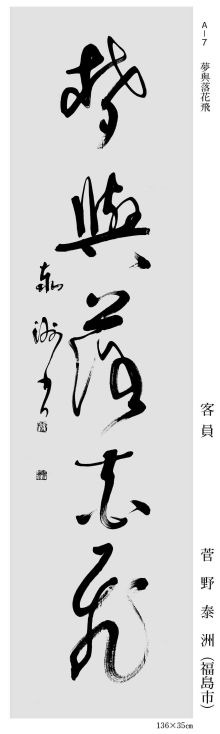 A-7 夢與落花飛
客員 菅野泰洲(福島市)
夢與落花飛
泰洲書
136×35㎝